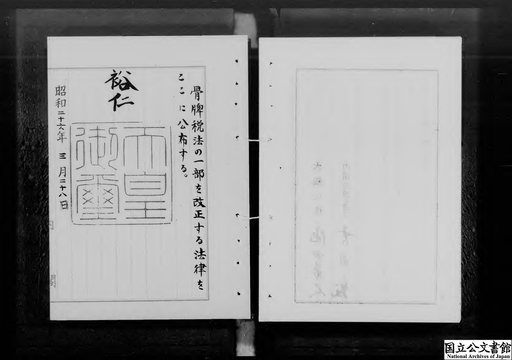 骨牌税法の一部を改正する法律を
ここに公布する。
裕仁
天皇
御璽
昭和二十六年三月二十八日
国立公文書館
National Archives of Japan